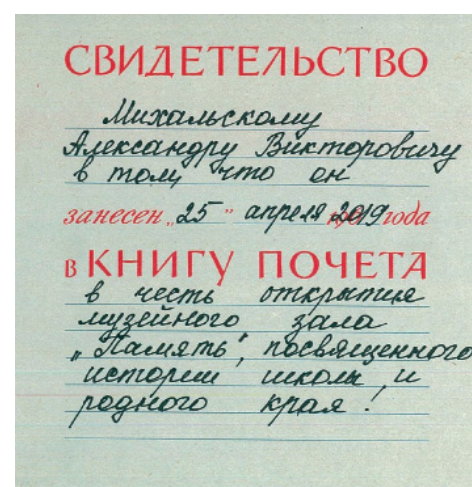 СВИДЕТЕЛЬСТВО
Михальскому
Александру Викторовичу
в том, что он
занесен „25" апреля 2019 года
в КНИГУ ПОЧЕТА
в честь открытия
музейного зала
„Память", посвященного
истории школы и
родного края!